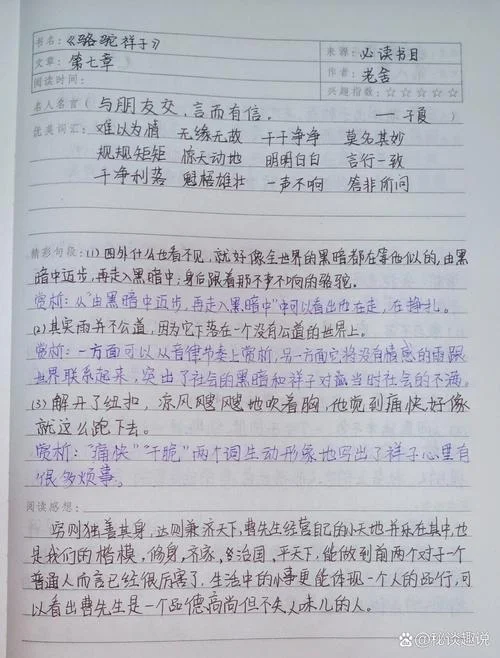 书名：《骆驼祥子》 来源：必读书目
文章：第七章 作者：老舍
阅读时间： 兴趣指数：☆☆☆☆☆
名人名言（与朋友交，言而有信。 ——子夏）
优美词汇：难以为情 无缘无故 干干净净 莫名其妙
规规矩矩 惊天动地 明明白白 言行一致
干净利落 魁梧雄壮 一声不响 答非所问
精彩句段：(1)四外什么也看不见，就好像全世界的黑暗都在等他似的，由黑
暗中迈步，再走入黑暗中；身后跟着那不声不响的骆驼。
赏析：从“由黑暗中迈步，再走入黑暗中”中可以看出他在走，在挣扎。
(2)其实雨并不公道，因为它下落在一个没有公道的世界上。
赏析：一方面可以从音律节奏上赏析，另一方面它将没有情感的雨跟
世界联系起来，突出了社会的黑暗和祥子对当时社会的不满。
(3)解开了纽扣，凉风飕飕地吹着胸，他觉到痛快，好像
就这么跑下去。
赏析：“痛快”“干脆”两个词生动形象地写出了祥子心里有
很多烦事。
阅读感想：
穷则独善其身，达则兼济天下，曹先生经营自己的小天地并乐在其中，也
是我们的楷模，修身，齐家，治国，平天下，能做到前两个对于一个
普通人而言已经很厉害了，生活中的小事更能体现一个人的品行，可
以看出曹先生是一个品德高尚但不失人味儿的人。
秘谈趣说